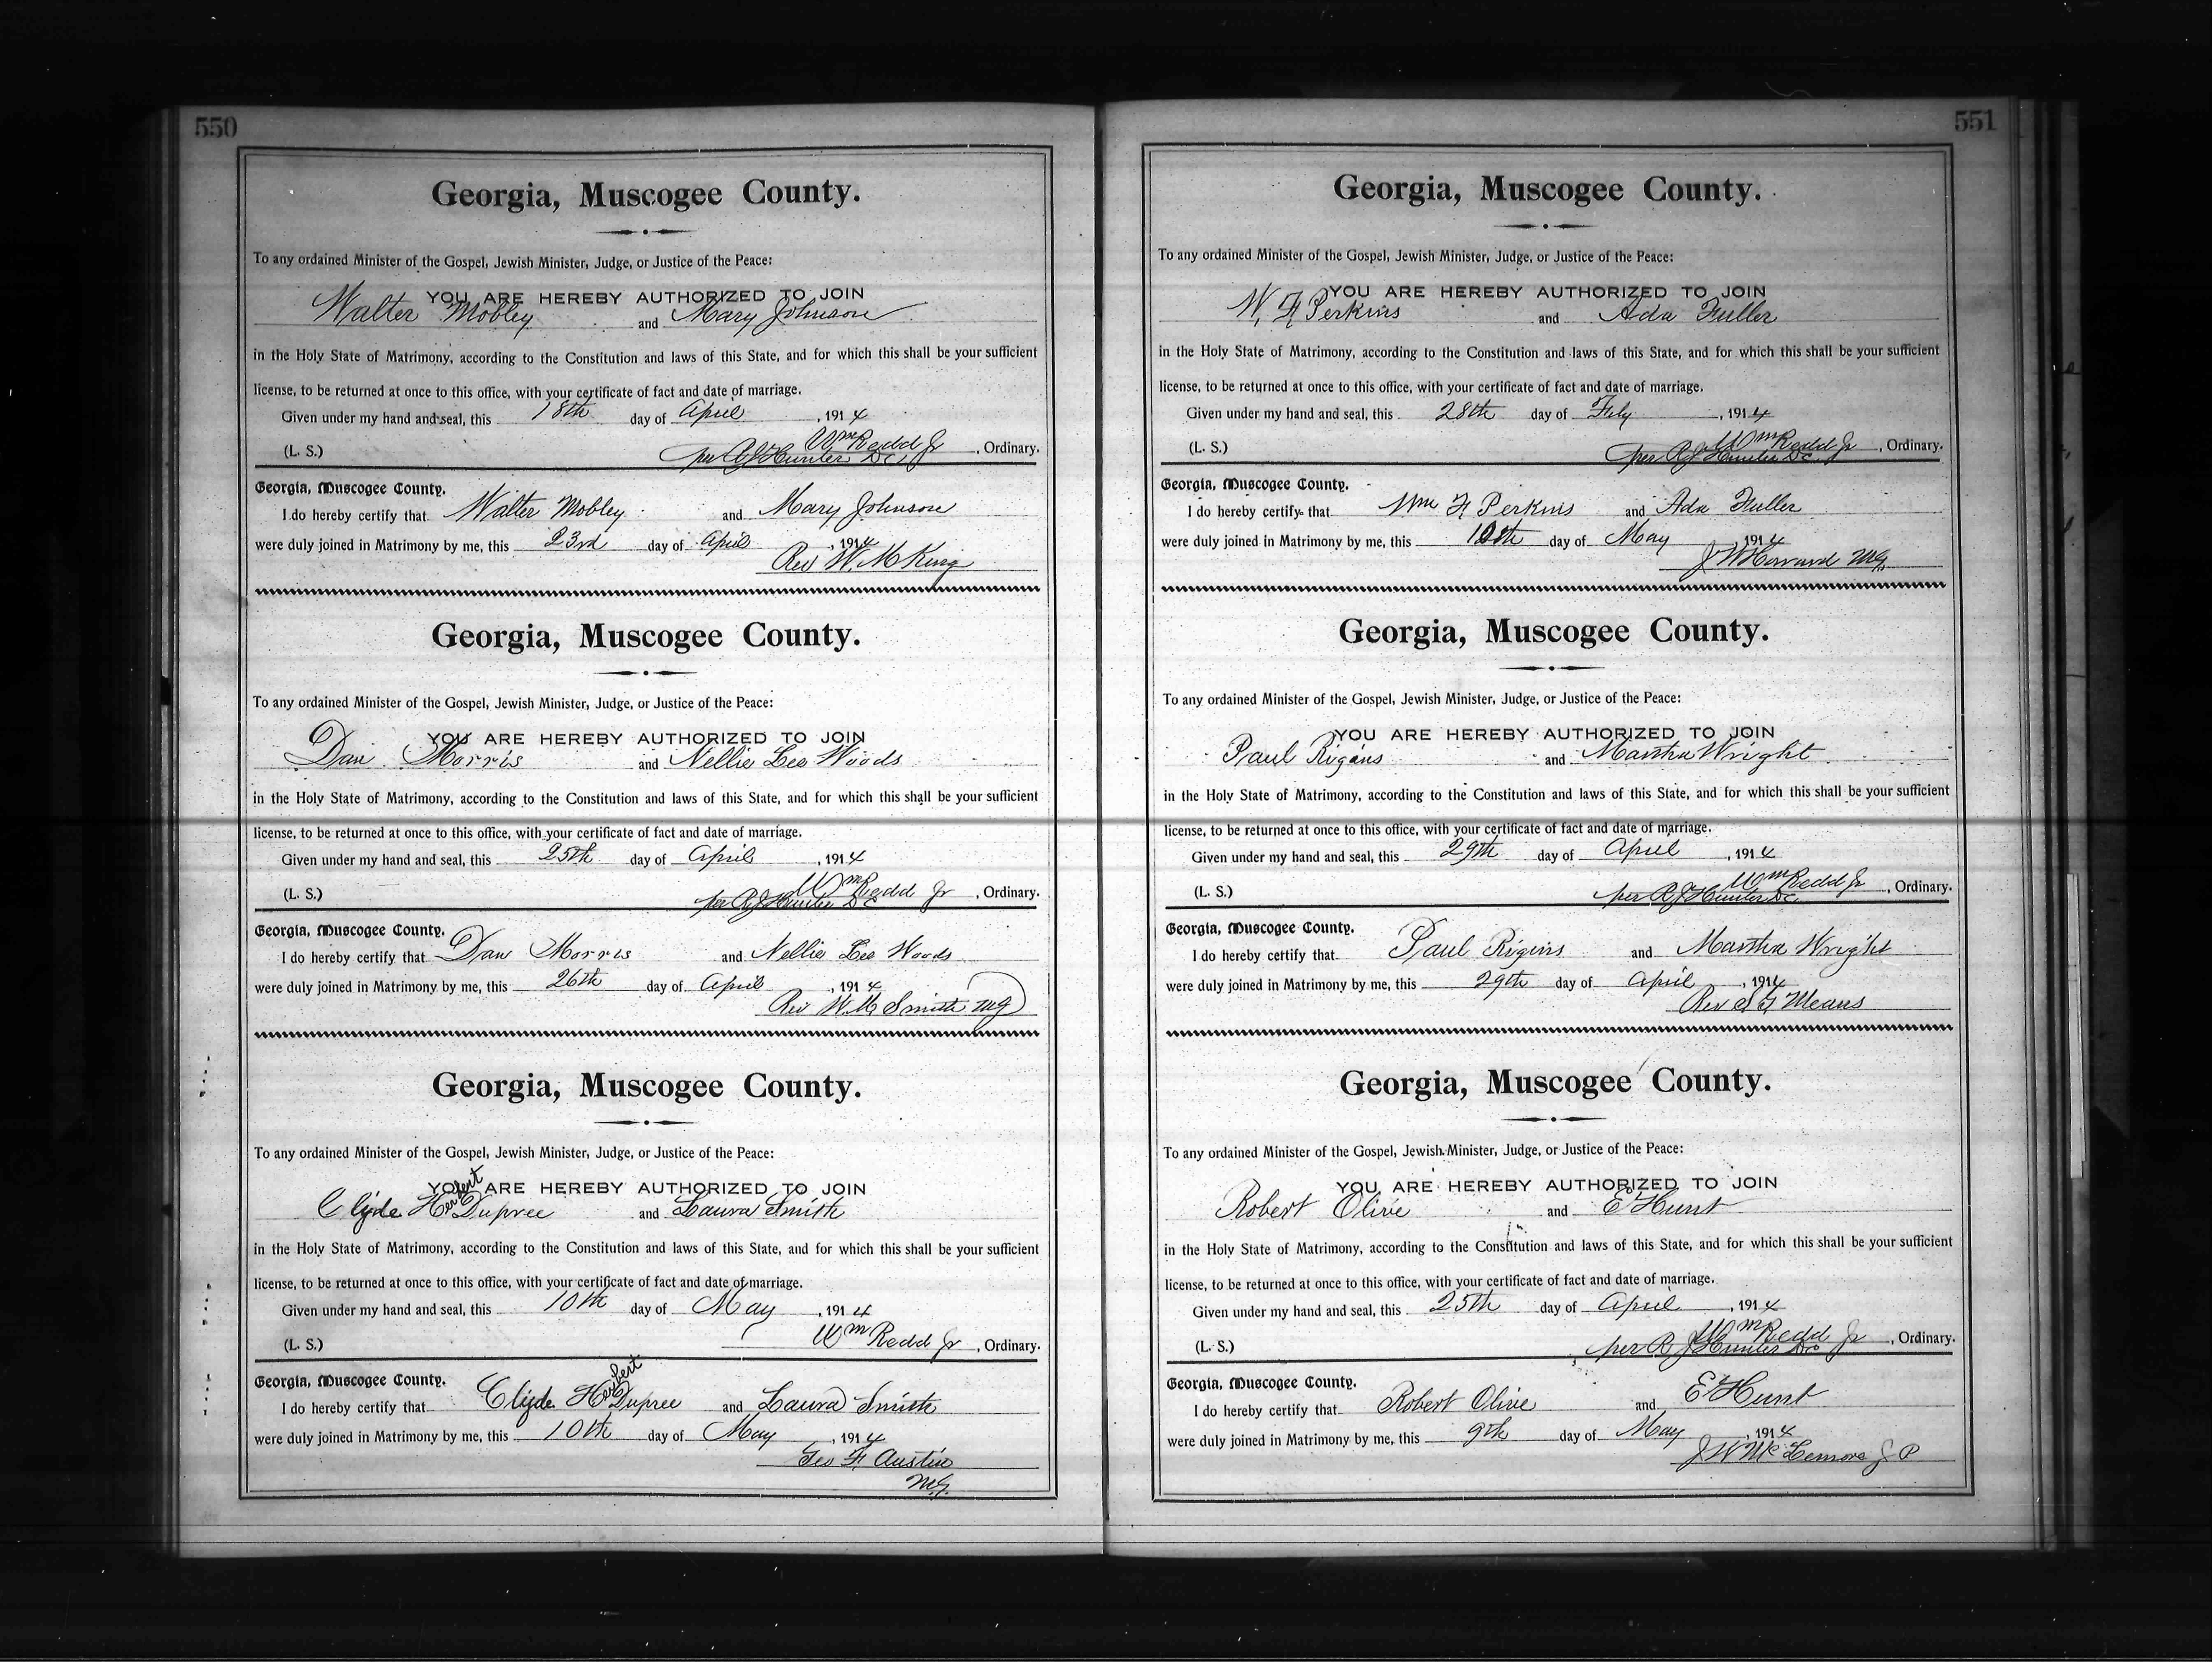 550
Georgia, Muscogee County.
To any ordained Minister of the Gospel, Jewish Minister, Judge, or Justice of the Peace:
YOU ARE HEREBY AUTHORIZED TO JOIN
Walter Mobley and Mary Johnson
in the Holy State of Matrimony, according to the Constitution and laws of this State, and for which this shall be your sufficient
license, to be returned at once to this office, with your certificate of fact and date of marriage.
Given under my hand and seal, this 18th day of April, 1914
Wm Redd Jr
(L. S.) per R J Hunter D C, Ordinary.
Georgia, Muscogee County.
I do hereby certify that Walter Mobley and Mary Johnson
were duly joined in Matrimony by me, this 23rd day of April, 1914
Rev W. M King
Georgia, Muscogee County.
To any ordained Minister of the Gospel, Jewish Minister, Judge, or Justice of the Peace:
YOU ARE HEREBY AUTHORIZED TO JOIN
Dan Morris and Nellie Lee Woods
in the Holy State of Matrimony, according to the Constitution and laws of this State, and for which this shall be your sufficient
license, to be returned at once to this office, with your certificate of fact and date of marriage.
Given under my hand and seal, this 25th day of April, 1914
Wm Redd Jr
(L. S.) per R J Hunter D C, Ordinary.
Georgia, Muscogee County.
I do hereby certify that Dan Morris and Nellie Lee Woods
were duly joined in Matrimony by me, this 26th day of April, 1914
Rev W. M. Smith MG
Georgia, Muscogee County.
To any ordained Minister of the Gospel, Jewish Minister, Judge, or Justice of the Peace:
YOU ARE HEREBY AUTHORIZED TO JOIN
Clyde Herbert Dupree and Laura Smith
in the Holy State of Matrimony, according to the Constitution and laws of this State, and for which this shall be your sufficient
license, to be returned at once to this office, with your certificate of fact and date of marriage.
Given under my hand and seal, this 10th day of May, 1914
(L. S.) Wm Redd Jr, Ordinary.
Georgia, Muscogee County.
I do hereby certify that Clyde Herbert Dupree and Laura Smith
were duly joined in Matrimony by me, this 10th day of May, 1914
Geo F Austin
M.G.
551
Georgia, Muscogee County.
To any ordained Minister of the Gospel, Jewish Minister, Judge, or Justice of the Peace:
YOU ARE HEREBY AUTHORIZED TO JOIN
W. F Perkins and Ada Fuller
in the Holy State of Matrimony, according to the Constitution and laws of this State, and for which this shall be your sufficient
license, to be returned at once to this office, with your certificate of fact and date of marriage.
Given under my hand and seal, this 28th day of July, 1914
Wm Redd Jr
(L. S.) per R J Hunter D C, Ordinary.
Georgia, Muscogee County.
I do hereby certify that Wm F Perkins and Ada Fuller
were duly joined in Matrimony by me, this day of May, 1914
J W Howard MG
Georgia, Muscogee County.
To any ordained Minister of the Gospel, Jewish Minister, Judge, or Justice of the Peace:
YOU ARE HEREBY AUTHORIZED TO JOIN
Paul Rigins and Martha Wright
in the Holy State of Matrimony, according to the Constitution and laws of this State, and for which this shall be your sufficient
license, to be returned at once to this office, with your certificate of fact and date of marriage.
Given under my hand and seal, this 29th day of April, 1914
Wm Redd Jr
(L. S.) per R J Hunter D C, Ordinary.
Georgia, Muscogee County.
I do hereby certify that Paul Rigins and Martha Wright
were duly joined in Matrimony by me, this 29th day of April, 1914
Rev S. F Means
Georgia, Muscogee County.
To any ordained Minister of the Gospel, Jewish Minister, Judge, or Justice of the Peace:
YOU ARE HEREBY AUTHORIZED TO JOIN
Robert Olive and E Hunt
in the Holy State of Matrimony, according to the Constitution and laws of this State, and for which this shall be your sufficient
license, to be returned at once to this office, with your certificate of fact and date of marriage.
Given under my hand and seal, this 25th day of April, 1914
Wm Redd Jr
(L. S.) per R J Hunter Dc, Ordinary.
Georgia, Muscogee County.
I do hereby certify that Robert Olive and E Hunt
were duly joined in Matrimony by me, this 9th day of May, 1914
J W McLemore J P